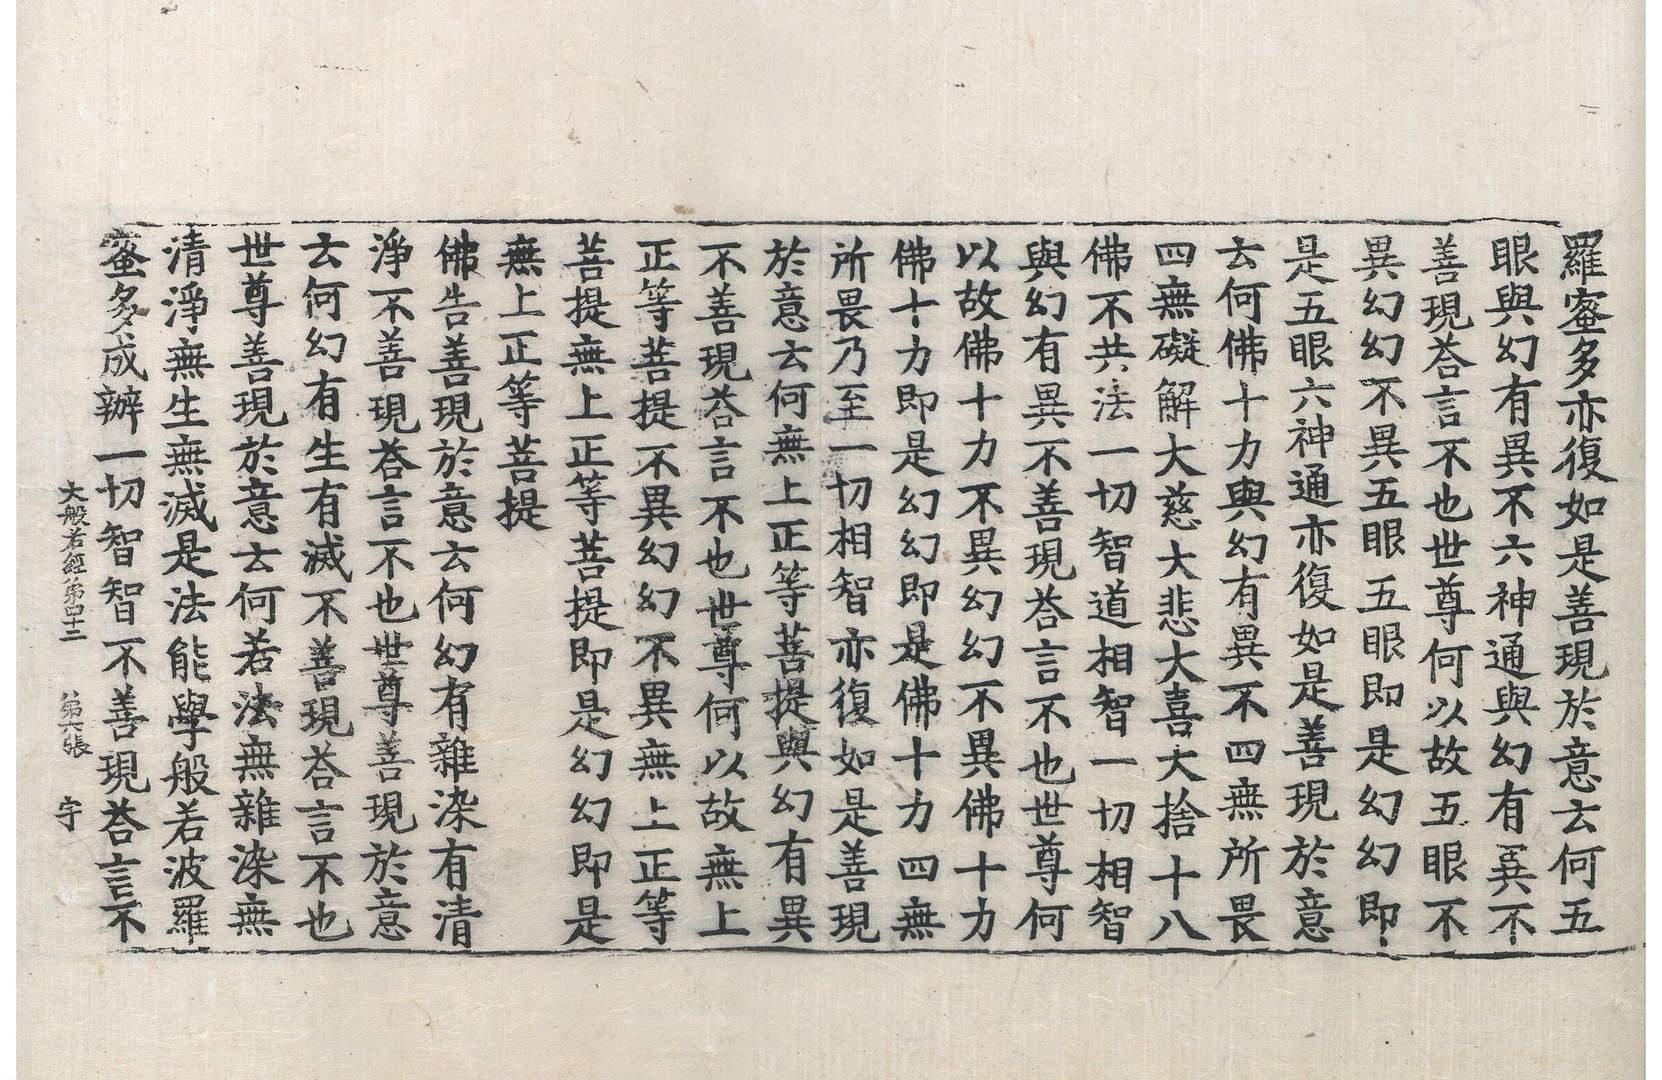 羅蜜多亦復如是善現於意云何五
眼與幻有異不六神通與幻有異不
善現荅言不也世尊何以故五眼不
異幻幻不異五眼五眼即是幻幻即
是五眼六神通亦復如是善現於意
云何佛十力與幻有異不四無所畏
四無礙解大慈大悲大喜大捨十八
佛不共法一切智道相智一切相智
與幻有異不善現荅言不也世尊何
以故佛十力不異幻幻不異佛十力
佛十力即是幻幻即是佛十力四無
所畏乃至一切相智亦復如是善現
於意云何無上正等菩提與幻有異
不善現荅言不也世尊何以故無上
正等菩提不異幻幻不異無上正等
菩提無上正等菩提即是幻幻即是
無上正等菩提
佛告善現於意云何幻有雜染有清
淨不善現荅言不也世尊善現於意
云何幻有生有滅不善現荅言不也
世尊善現於意云何若法無雜染無
清淨無生無滅是法能學般若波羅
蜜多成辦一切智智不善現荅言不
大般若經第四十二 第六張 宇